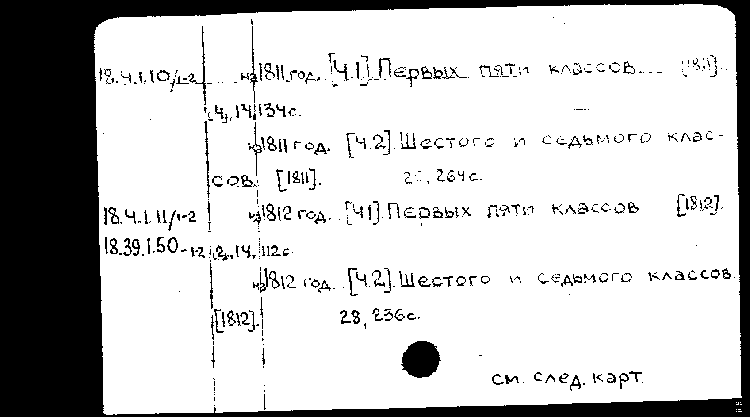 18.4.1.10/1-2 на 1811 год. [Ч.1]. Первых пяти классов... [1811].
14, 134 с.
на 1811 год. [Ч.2]. Шестого и седьмого клас-
сов. [1811]. 264 с.
18.4.1.11/1-2 на 1812 год. [Ч1]. Первых пяти классов [1812].
18.39.1.50-1-2 14, 112 с.
на 1812 год. [Ч.2]. Шестого и седьмого классов.
[1812]. 28, 236 с.
см. след. карт.